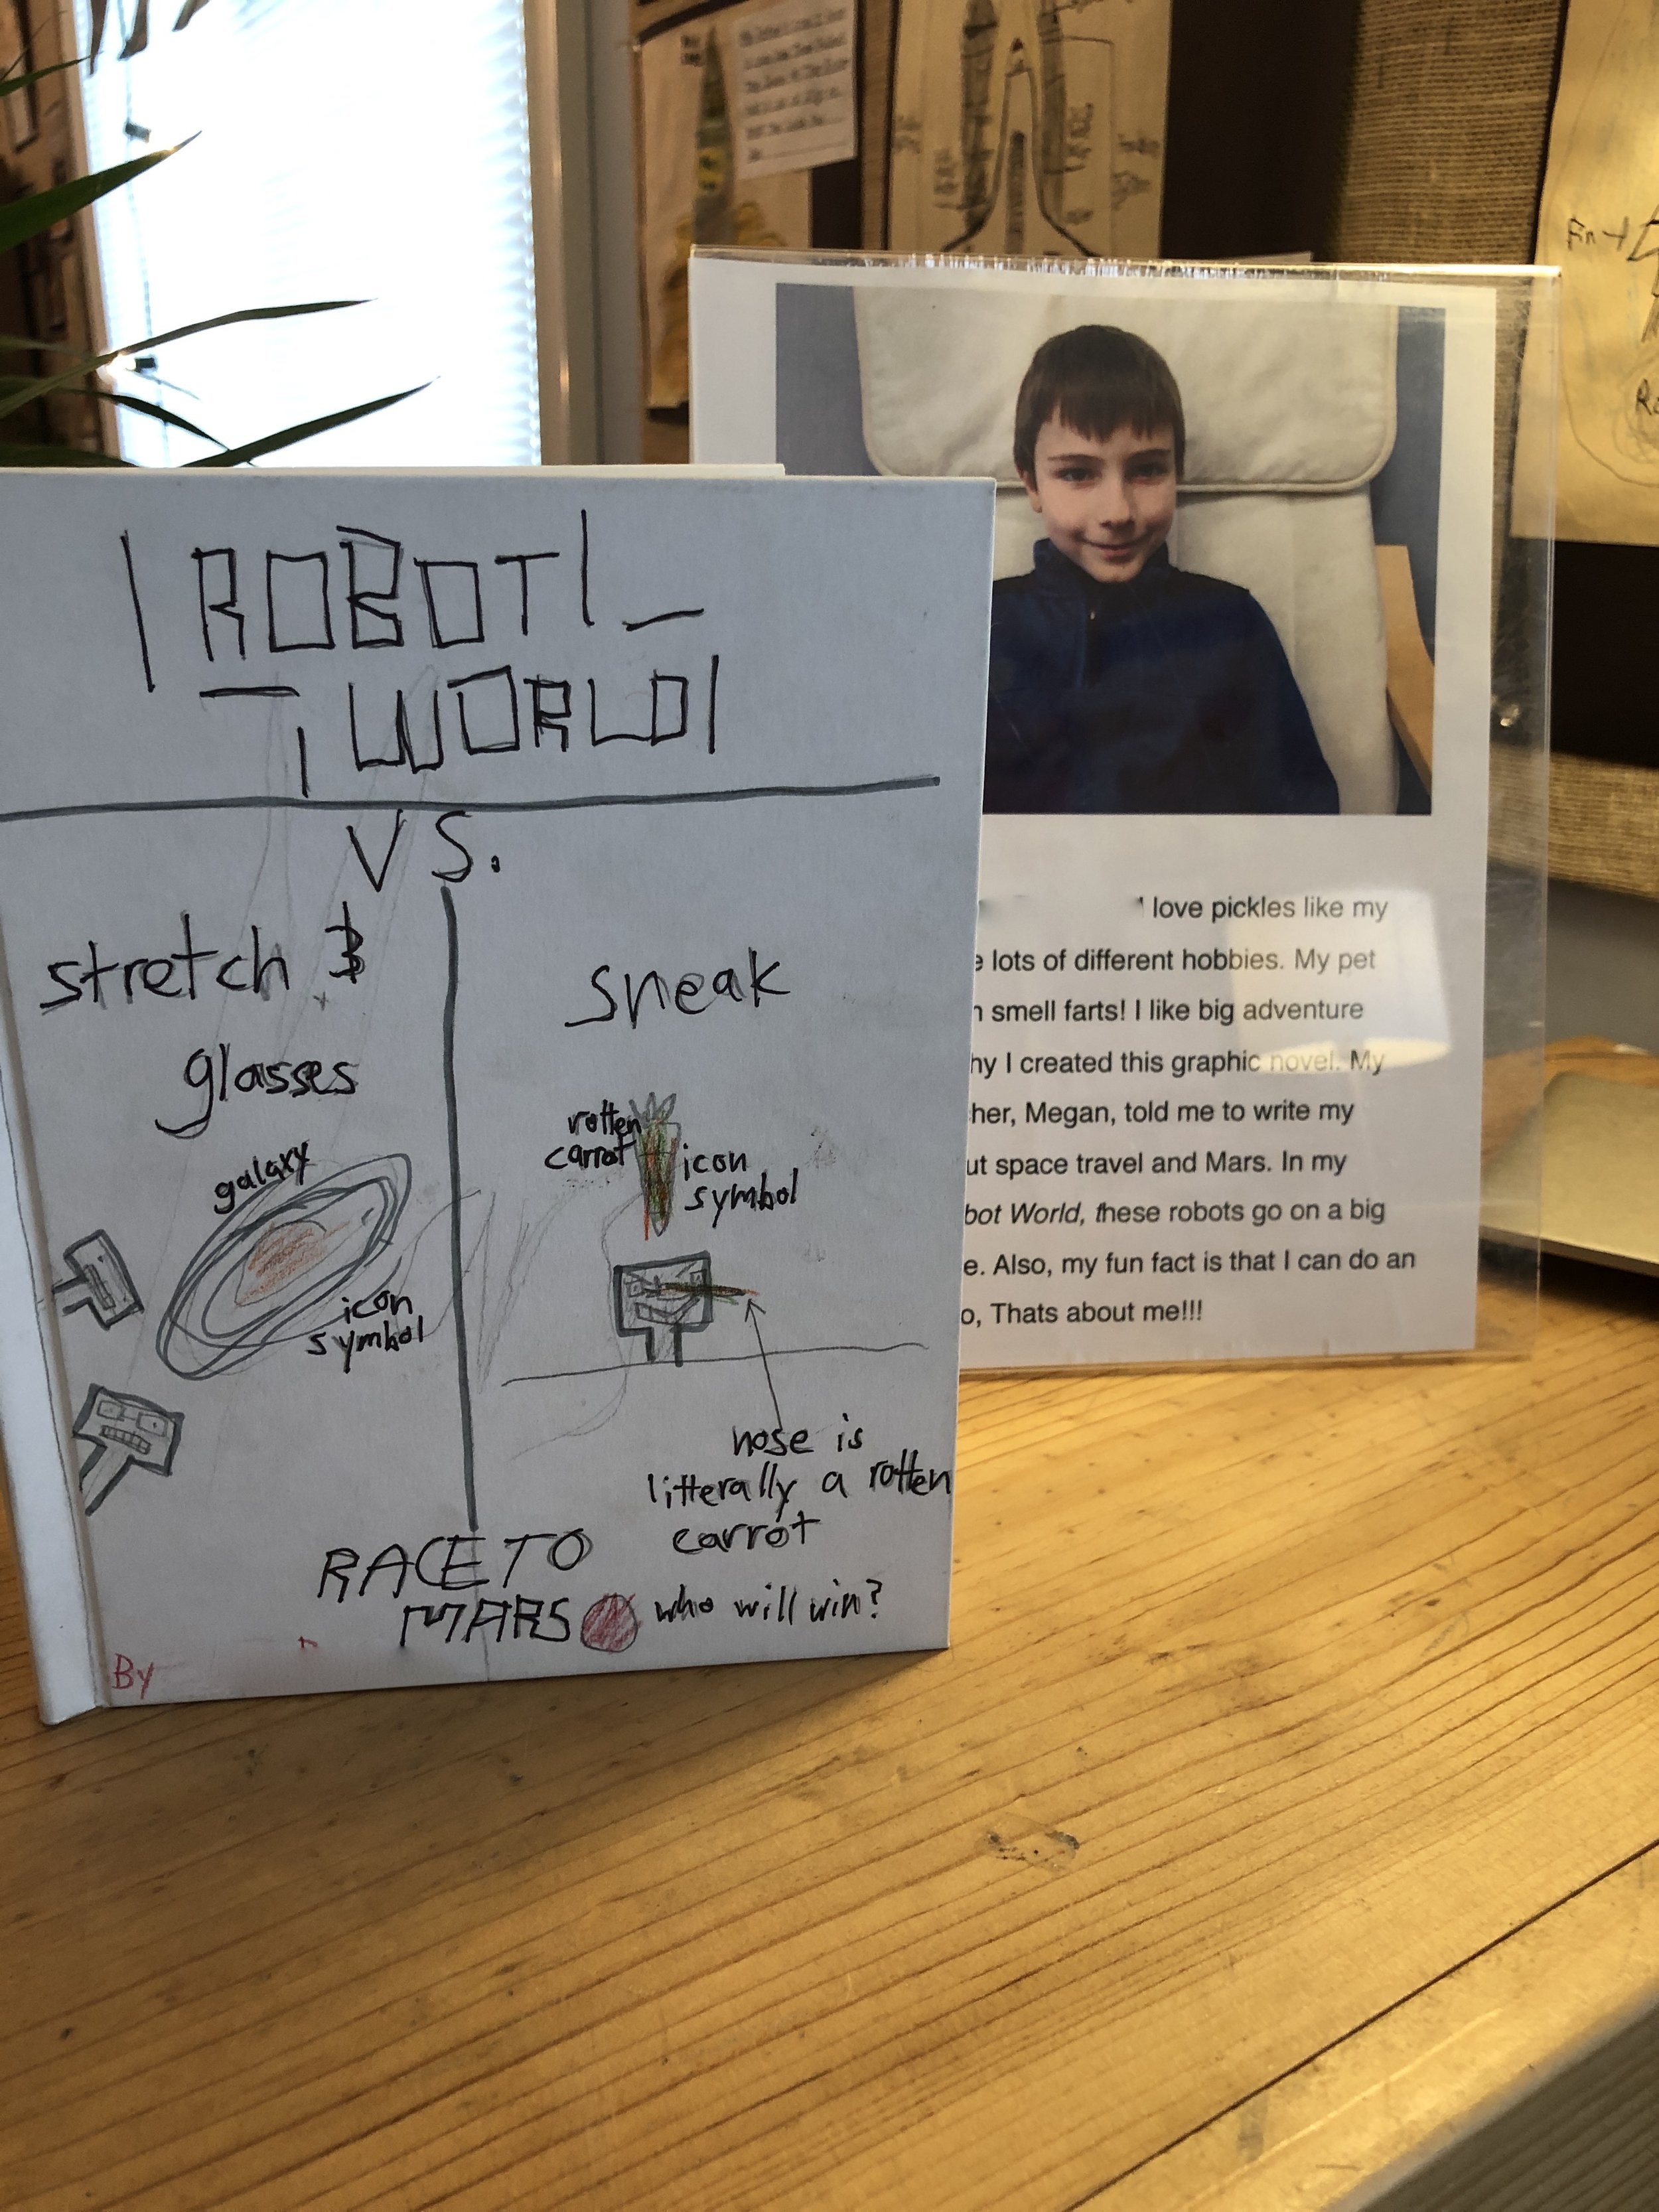 ROBOT
WORLD
VS.
stretch &
glasses
galaxy
icon
symbol
sneak
rotten
carrot
icon
symbol
nose is
litterally a rotten
carrot
RACE TO
MARS who will win?
By
love pickles like my
lots of different hobbies. My pet
smell farts! I like big adventure
I created this graphic novel. My
Megan, told me to write my
space travel and Mars. In my
World, these robots go on a big
Also, my fun fact is that I can do an
Thats about me!!!
Fin